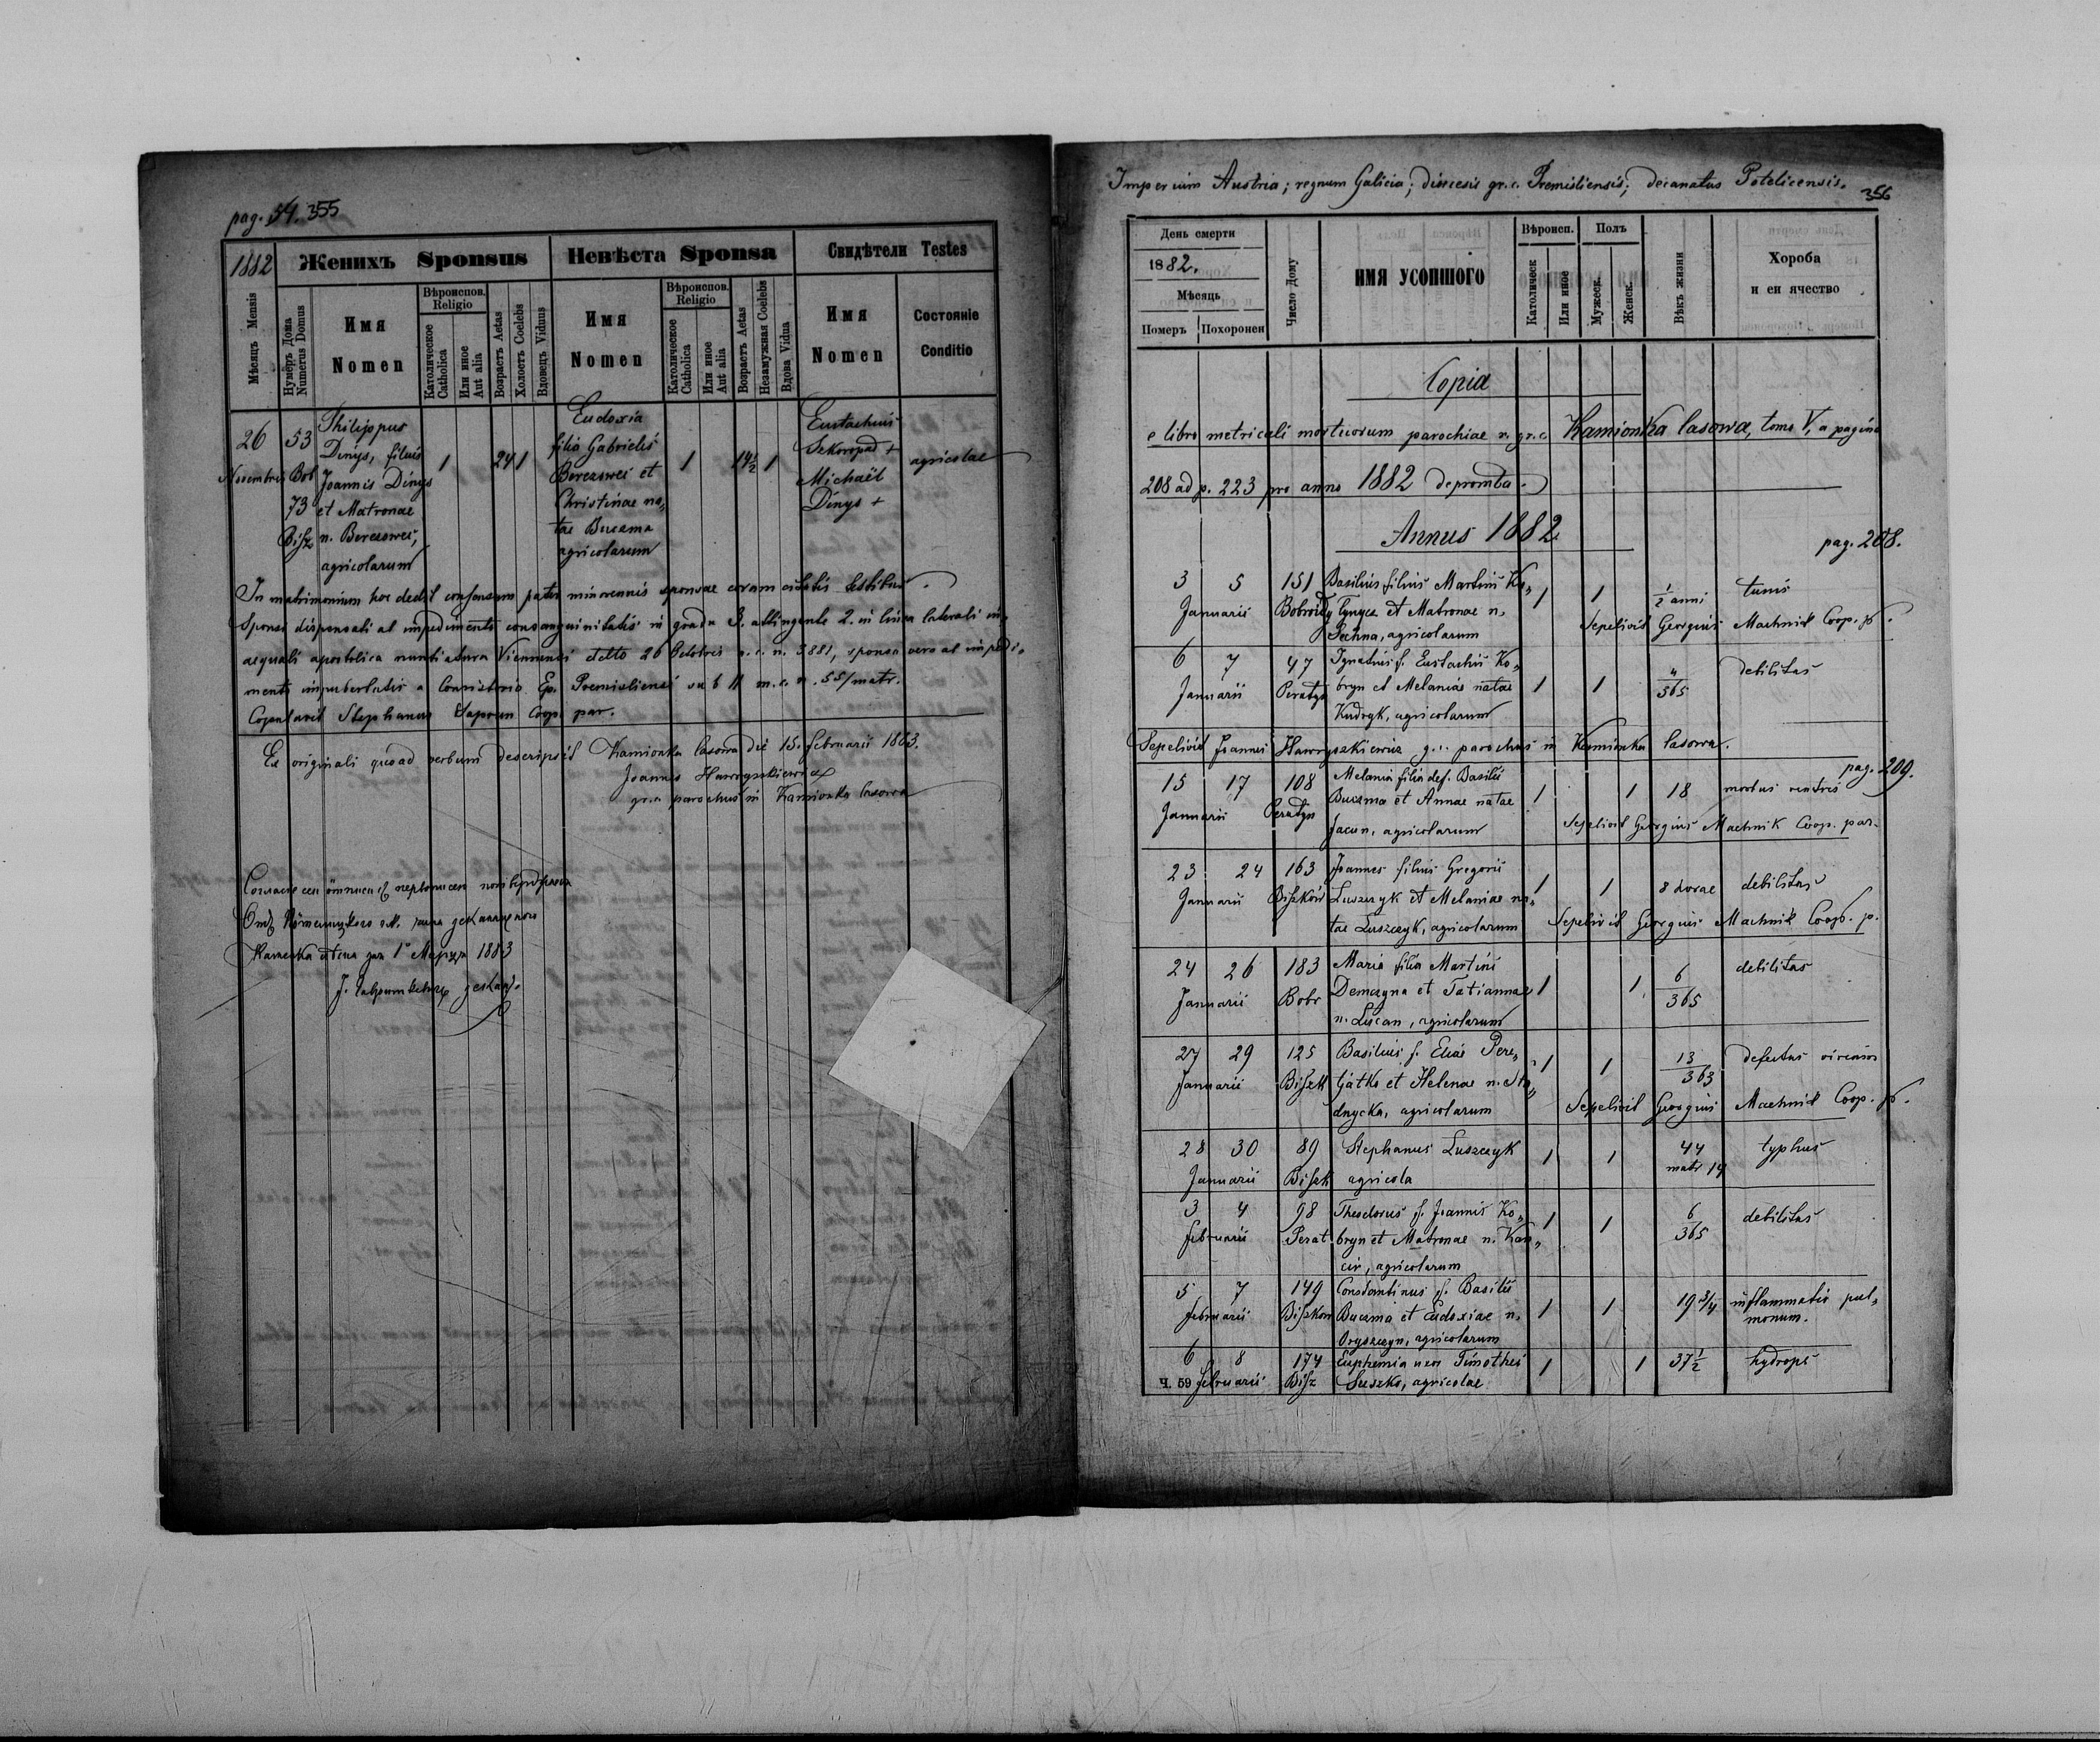 pag. 54. 355
1882 Женихъ Sponsus Невѣста Sponsa Свидѣтели Testes
Мѣсяцъ Mensis
Нумеръ Дома Numerus Domus
Имя Nomen
Вѣроиспов. Religio
Католическое Catholica
Или иное Aut alia
Возрастъ Aetas
Холостъ Coelebs
Вдовецъ Viduus
Имя Nomen
Вѣроиспов. Religio
Католическое Catholica
Или иное Aut alia
Возрастъ Aetas
Незамужная Coelebs
Вдова Vidua
Имя Nomen
Состояніе Conditio
26 Novembris
53 Bob
73 Bisz
Philippus
Dinys, filius
Joannis Dinys
et Matronae
n. Berezowei,
agricolarum
1 24 1
Eudoxia
filia Gabrielis
Berezowei et
Christinae na„
tae Buczma
agricolarum
1 14½ 1
Eustachius
Szkoropad +
Michaël
Dinys +
agricolae
In matrimonium hoc dedit consensum pater minorennis sponsae coram citatis testibus.
Sponsi dispensati ab impedimento consanguinitatis in gradu 3. attingente 2. in linea laterali in„
aequali apostolica nuntiatura Viennensi ddto 26 Octobris a. c. n. 3881, sponsa vero ab impedi„
mento impubertatis a Consistorio Ep. Premisliensi sub 11 m. c. n. 55/matr.
Copulavit Stephanus Saprun Coop. par.
Ex originali quoad verbum descripsit Kamionka lasowa die 15. februarii 1883.
Joannes Hawryszkiewicz
gr. c. parochus in Kamionka lasowa
1883
Imperium Austria; regnum Galicia; dioecesis gr. c. Premisliensis; decanatus Potelicensis. 356
День смерти
1882.
Мѣсяць
Померъ Похороненъ
Число Дому
ИМЯ УСОПШОГО
Вѣроисп.
Католическ
Или иное
Полъ
Мужеск.
Женск.
Вѣкъ жизни
Хороба
и еи ячество
Copia
e libro metricali mortuorum parochiae r. gr. c. Kamionka lasowa, tomo V, a pagina
208 ad p. 223 pro anno 1882 deprompta.
Annus 1882
pag. 208.
3 5 151 Basilius filius Martini Ko„ 1 1 ½ anni tussis
Januarii Bobroidy et Matronae n.
Pechna, agricolarum Sepelivit Georgius Machnik Coop. p.
6 7 47 Ignatius f. Eustachii Ko„ debilitas
Januarii Peratyn bryn et Melaniae natae 1 1 4/365
Kudryk, agricolarum
Sepelivit Joannes Hawryszkiewicz g. c. parochus in Kamionka lasowa.
pag. 209.
15 17 108 Melania filia def. Basilii 1 1 18 morbus ventris
Januarii Peratyn Buczma et Annae natae
Jacun, agricolarum Sepelivit Georgius Machnik Coop. par.
23 24 163 Joannes filius Gregorii 1 1 8 horae debilitas
Januarii Biszków Luszczyk et Melaniae na„
tae Luszczyk, agricolarum Sepelivit Georgius Machnik Coop. p.
24 26 183 Maria filia Martini debilitas
Januarii Bobr Demczyna et Tatiannae 1 1 6/365
n. Lucan, agricolarum
27 29 125 Basilius f. Eliae Pere„ 1 1 13/365 defectus virium
Januarii Biszk tjatko et Helenae n. Sta„
dnycka, agricolarum Sepelivit Georgius Machnik Coop. p.
28 30 89 Stephanus Luszczyk 1 1 44 typhus
Januarii Biszk agricola matr 19
3 4 98 Theodorus f. Joannis Ko„ 1 1 6/365 debilitas
februarii Perat. bryn et Matronae n. Kas„
cir, agricolarum
5 7 149 Constantinus f. Basilii
februarii Biszkow Buczma et Eudoxiae n. 1 1 19 3/4 inflammatio pul„
monum.
Oryszczyn, agricolarum
6 8 174 Euphemia uxor Timothei 1 1 37½ hydrops
Ч. 59 februarii Bisz Suszko, agricolae